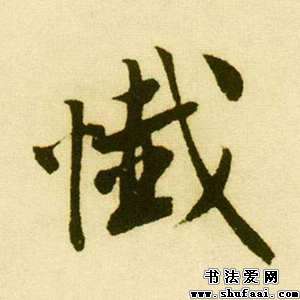 懺
书法爱网
www.shufaai.com